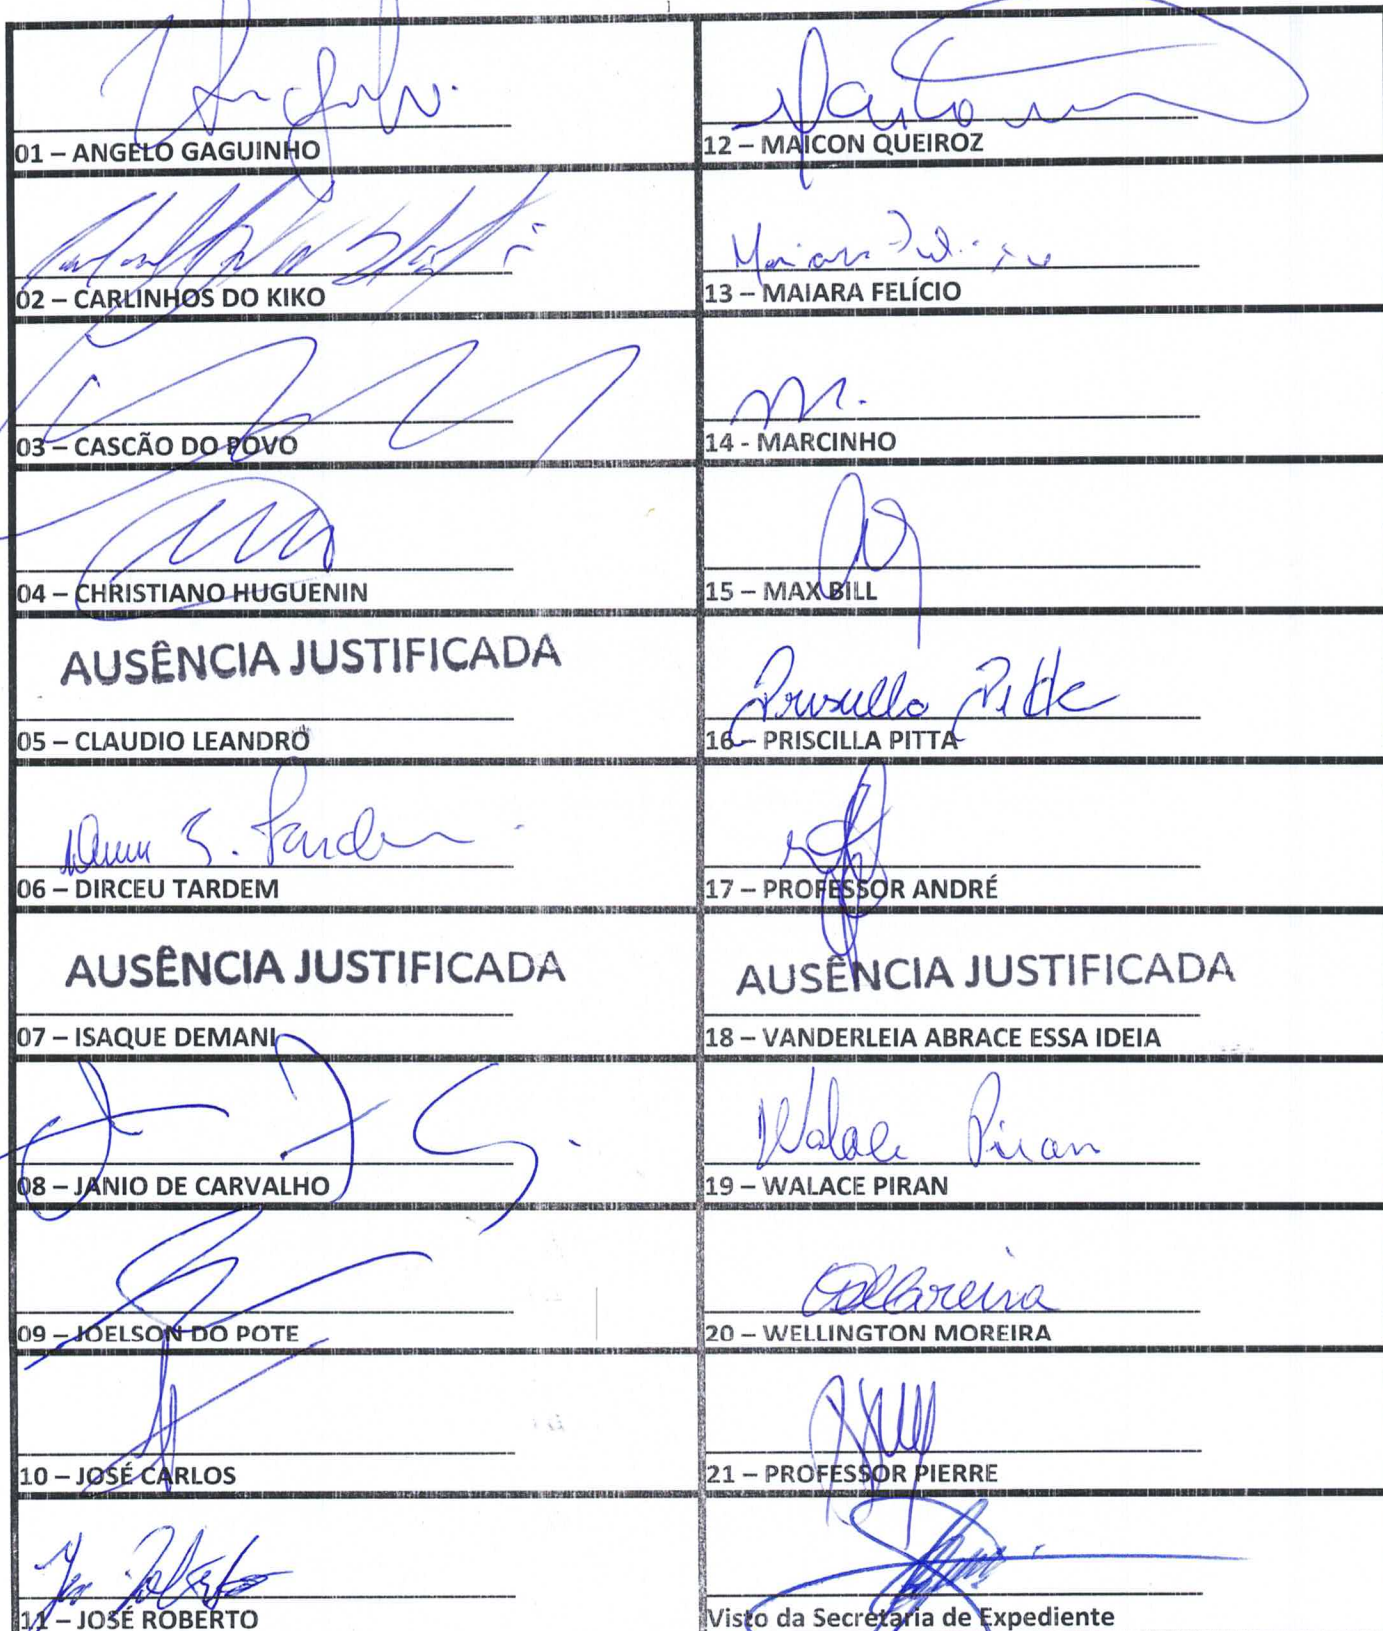 01 – ANGELO GAGUINHO
02 – CARLINHOS DO KIKO
03 – CASCÃO DO POVO
04 – CHRISTIANO HUGUENIN
AUSÊNCIA JUSTIFICADA
05 – CLAUDIO LEANDRO
06 – DIRCEU TARDEM
AUSÊNCIA JUSTIFICADA
07 – ISAQUE DEMANI
08 – JANIO DE CARVALHO
09 – JOELSON DO POTE
10 – JOSÉ CARLOS
José Roberto
11 – JOSÉ ROBERTO
12 – MAICON QUEIROZ
Maiara Felício
13 – MAIARA FELÍCIO
14 - MARCINHO
15 – MAX BILL
Priscilla Pitta
16 – PRISCILLA PITTA
17 – PROFESSOR ANDRÉ
AUSÊNCIA JUSTIFICADA
18 – VANDERLEIA ABRACE ESSA IDEIA
Walace Piran
19 – WALACE PIRAN
20 – WELLINGTON MOREIRA
21 – PROFESSOR PIERRE
Visto da Secretaria de Expediente